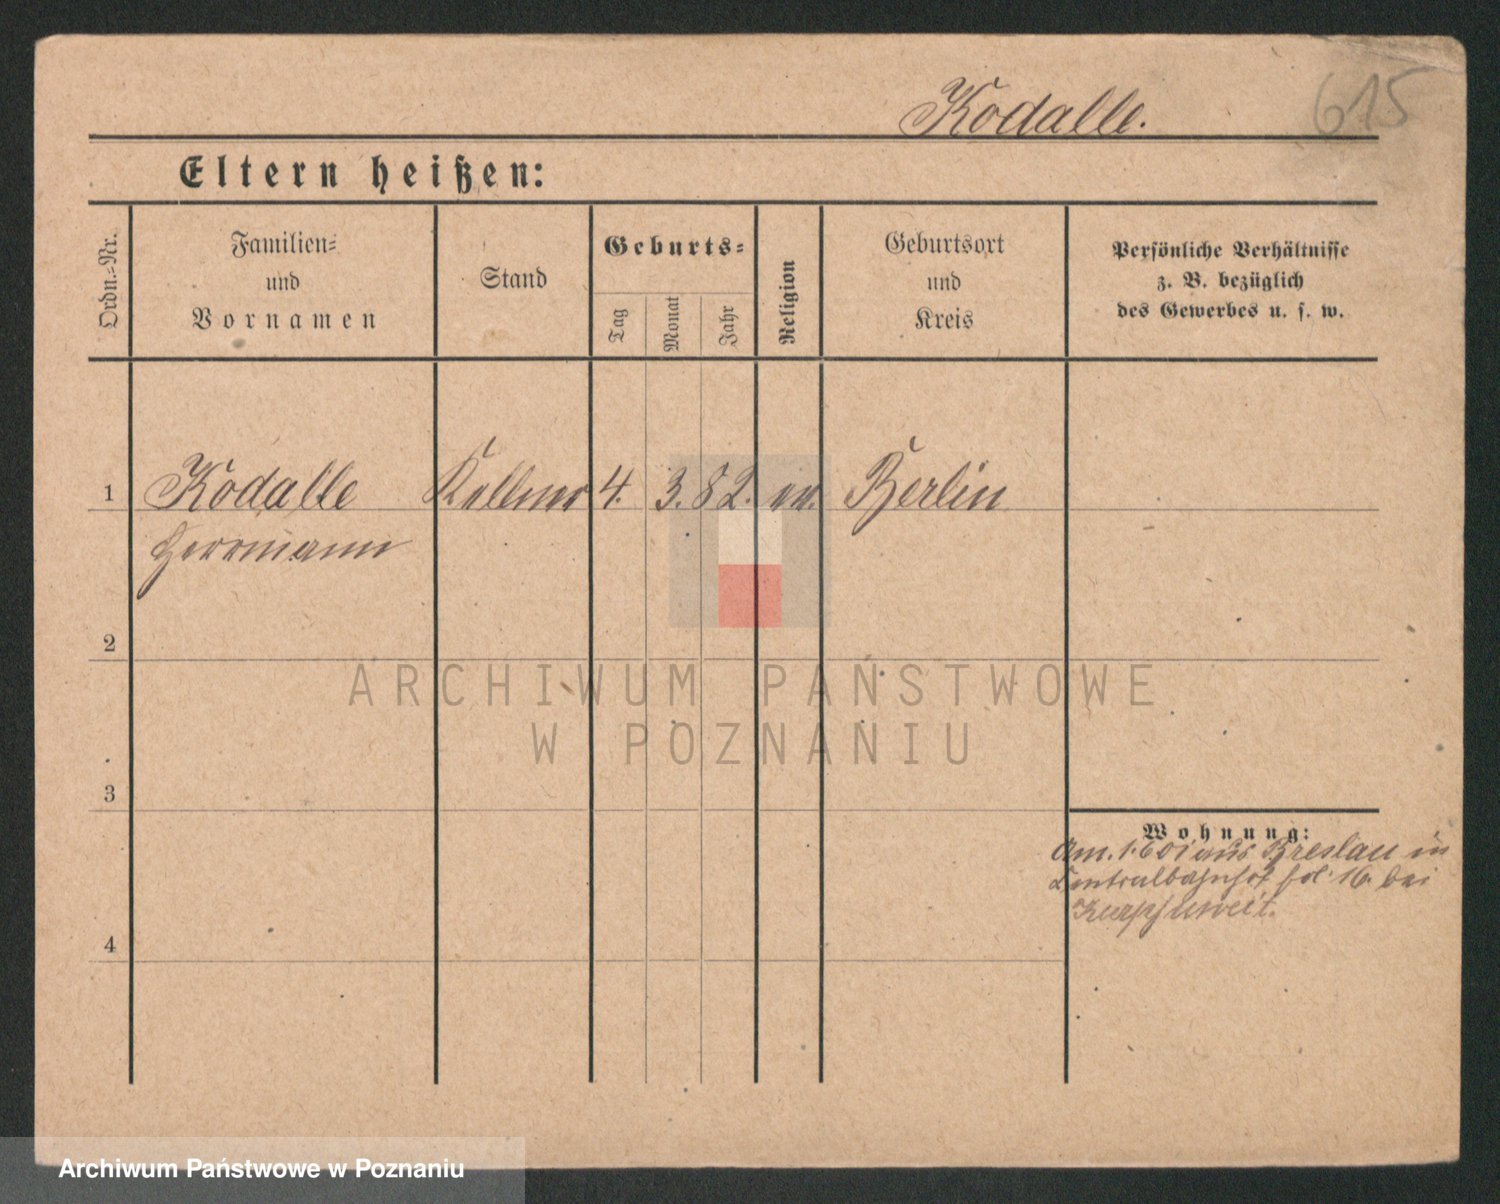 Kodalle.
615
Eltern heißen:
Ordn.-Nr.
Familien-
und
Vornamen
Stand
Geburts-
Tag
Monat
Jahr
Religion
Geburtsort
und
Kreis
Persönliche Verhältnisse
z. B. bezüglich
des Gewerbes u. s. w.
1 Kodalle Kellner 4. 3. 82. ev. Berlin
Herrmann
2
ARCHIWUM PAŃSTWOWE
W POZNANIU
3
Wohnung:
Am. 1. aus Breslau in
Centralbahnhof 16. bei
4
Archiwum Państwowe w Poznaniu